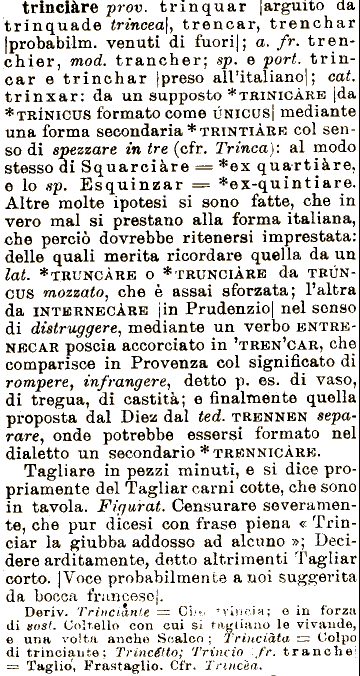 trinciàre prov. trinquar |arguito da
trinquade trincea|, trencar, trenchar
|probabilm. venuti di fuori|; a. fr. tren-
chier, mod. trancher; sp. e port. trin-
car e trinchar |preso all'italiano|; cat.
trinxar: da un supposto *TRINICÀRE |da
*TRÌNICUS formato come ÚNICUS| mediante
una forma secondaria *TRINTIÀRE col sen-
so di spezzare in tre (cfr. Trinca): al modo
stesso di Squarciàre = *ex quartiàre,
e lo sp. Esquinzar = *ex-quintiare.
Altre molte ipotesi si sono fatte, che in
vero mal si prestano alla forma italiana,
che perciò dovrebbe ritenersi imprestata:
delle quali merita ricordare quella da un
lat. *TRUNCÀRE o *TRUNCIÀRE da TRÚN-
CUS mozzato, che è assai sforzata; l'altra
da INTERNECÀRE |in Prudenzio| nel senso
di distruggere, mediante un verbo ENTRE-
NECAR poscia accorciato in 'TREN'CAR, che
comparisce in Provenza col significato di
rompere, infrangere, detto p. es. di vaso,
di tregua, di castità; e finalmente quella
proposta dal Diez dal ted. TRENNEN sepa-
rare, onde potrebbe essersi formato nel
dialetto un secondario *TRENNICÀRE.
Tagliare in pezzi minuti, e si dice pro-
priamente del Tagliar carni cotte, che sono
in tavola. Figurat. Censurare severamen-
te, che pur dicesi con frase piena « Trin-
ciar la giubba addosso ad alcuno »; Deci-
dere arditamente, detto altrimenti Tagliar
corto. |Voce probabilmente a noi suggerita
da bocca francese|.
Deriv. Trinciànte = Che trincia; e in forza
di sost. Coltello con cui si tagliano le vivande,
e una volta anche Scalco; Trinciàta = Colpo
di trinciante; Trincétto; Trincio fr. tranche
= Taglio, Frastaglio. Cfr. Trincèa.